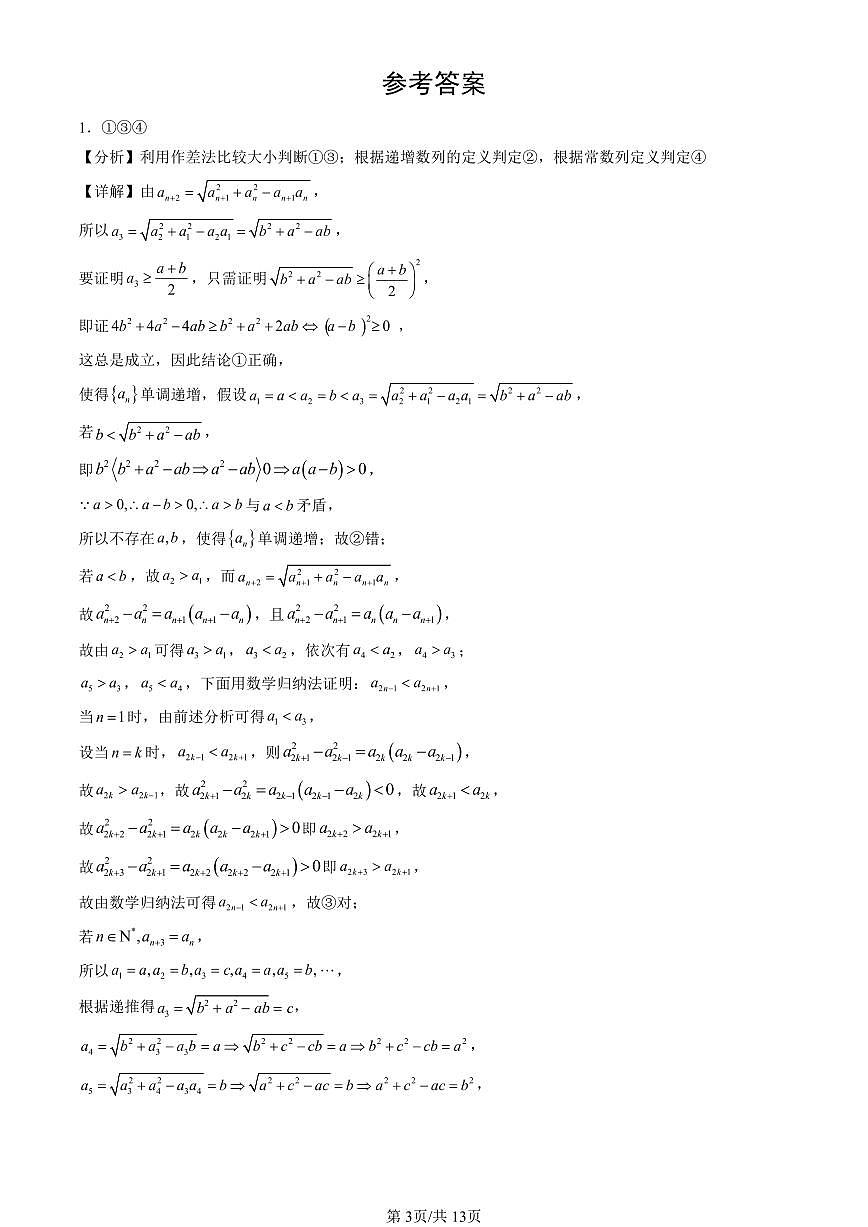 参考答案
1．①③④
【分析】利用作差法比较大小判断①③；根据递增数列的定义判定②，根据常数列定义判定④
【详解】由 $a_{n+2}=\sqrt{a_{n+1}^2+a_n^2-a_{n+1}a_n}$，
所以 $a_3=\sqrt{a_2^2+a_1^2-a_2a_1}=\sqrt{b^2+a^2-ab}$，
要证明 $a_3\geq\frac{a+b}{2}$，只需证明 $\sqrt{b^2+a^2-ab}\geq\left(\frac{a+b}{2}\right)^2$，
即证 $4b^2+4a^2-4ab\geq b^2+a^2+2ab\Leftrightarrow(a-b)^2\geq 0$ ，
这总是成立，因此结论①正确，
使得 $\{a_n\}$ 单调递增，假设 $a_1=a<a_2=b<a_3=\sqrt{a_2^2+a_1^2-a_2a_1}=\sqrt{b^2+a^2-ab}$，
若 $b<\sqrt{b^2+a^2-ab}$，
即 $b^2\langle b^2+a^2-ab\Rightarrow a^2-ab\rangle 0\Rightarrow a(a-b)>0$，
$\because a>0,\therefore a-b>0,\therefore a>b$ 与 $a<b$ 矛盾，
所以不存在 $a,b$，使得 $\{a_n\}$ 单调递增；故②错；
若 $a<b$，故 $a_2>a_1$，而 $a_{n+2}=\sqrt{a_{n+1}^2+a_n^2-a_{n+1}a_n}$，
故 $a_{n+2}^2-a_n^2=a_{n+1}(a_{n+1}-a_n)$，且 $a_{n+2}^2-a_{n+1}^2=a_n(a_n-a_{n+1})$，
故由 $a_2>a_1$ 可得 $a_3>a_1$，$a_3<a_2$，依次有 $a_4<a_2$，$a_4>a_3$；
$a_5>a_3$，$a_5<a_4$，下面用数学归纳法证明：$a_{2n-1}<a_{2n+1}$，
当 $n=1$ 时，由前述分析可得 $a_1<a_3$，
设当 $n=k$ 时，$a_{2k-1}<a_{2k+1}$，则 $a_{2k+1}^2-a_{2k-1}^2=a_{2k}(a_{2k}-a_{2k-1})$，
故 $a_{2k}>a_{2k-1}$，故 $a_{2k+1}^2-a_{2k}^2=a_{2k-1}(a_{2k-1}-a_{2k})<0$，故 $a_{2k+1}<a_{2k}$，
故 $a_{2k+2}^2-a_{2k+1}^2=a_{2k}(a_{2k}-a_{2k+1})>0$ 即 $a_{2k+2}>a_{2k+1}$，
故 $a_{2k+3}^2-a_{2k+1}^2=a_{2k+2}(a_{2k+2}-a_{2k+1})>0$ 即 $a_{2k+3}>a_{2k+1}$，
故由数学归纳法可得 $a_{2n-1}<a_{2n+1}$，故③对；
若 $n\in\mathrm{N}^*,a_{n+3}=a_n$，
所以 $a_1=a,a_2=b,a_3=c,a_4=a,a_5=b,\cdots$，
根据递推得 $a_3=\sqrt{b^2+a^2-ab}=c$，
$a_4=\sqrt{b^2+a_3^2-a_3b}=a\Rightarrow\sqrt{b^2+c^2-cb}=a\Rightarrow b^2+c^2-cb=a^2$，
$a_5=\sqrt{a_3^2+a_4^2-a_3a_4}=b\Rightarrow\sqrt{a^2+c^2-ac}=b\Rightarrow a^2+c^2-ac=b^2$，
第 3页/共 13页